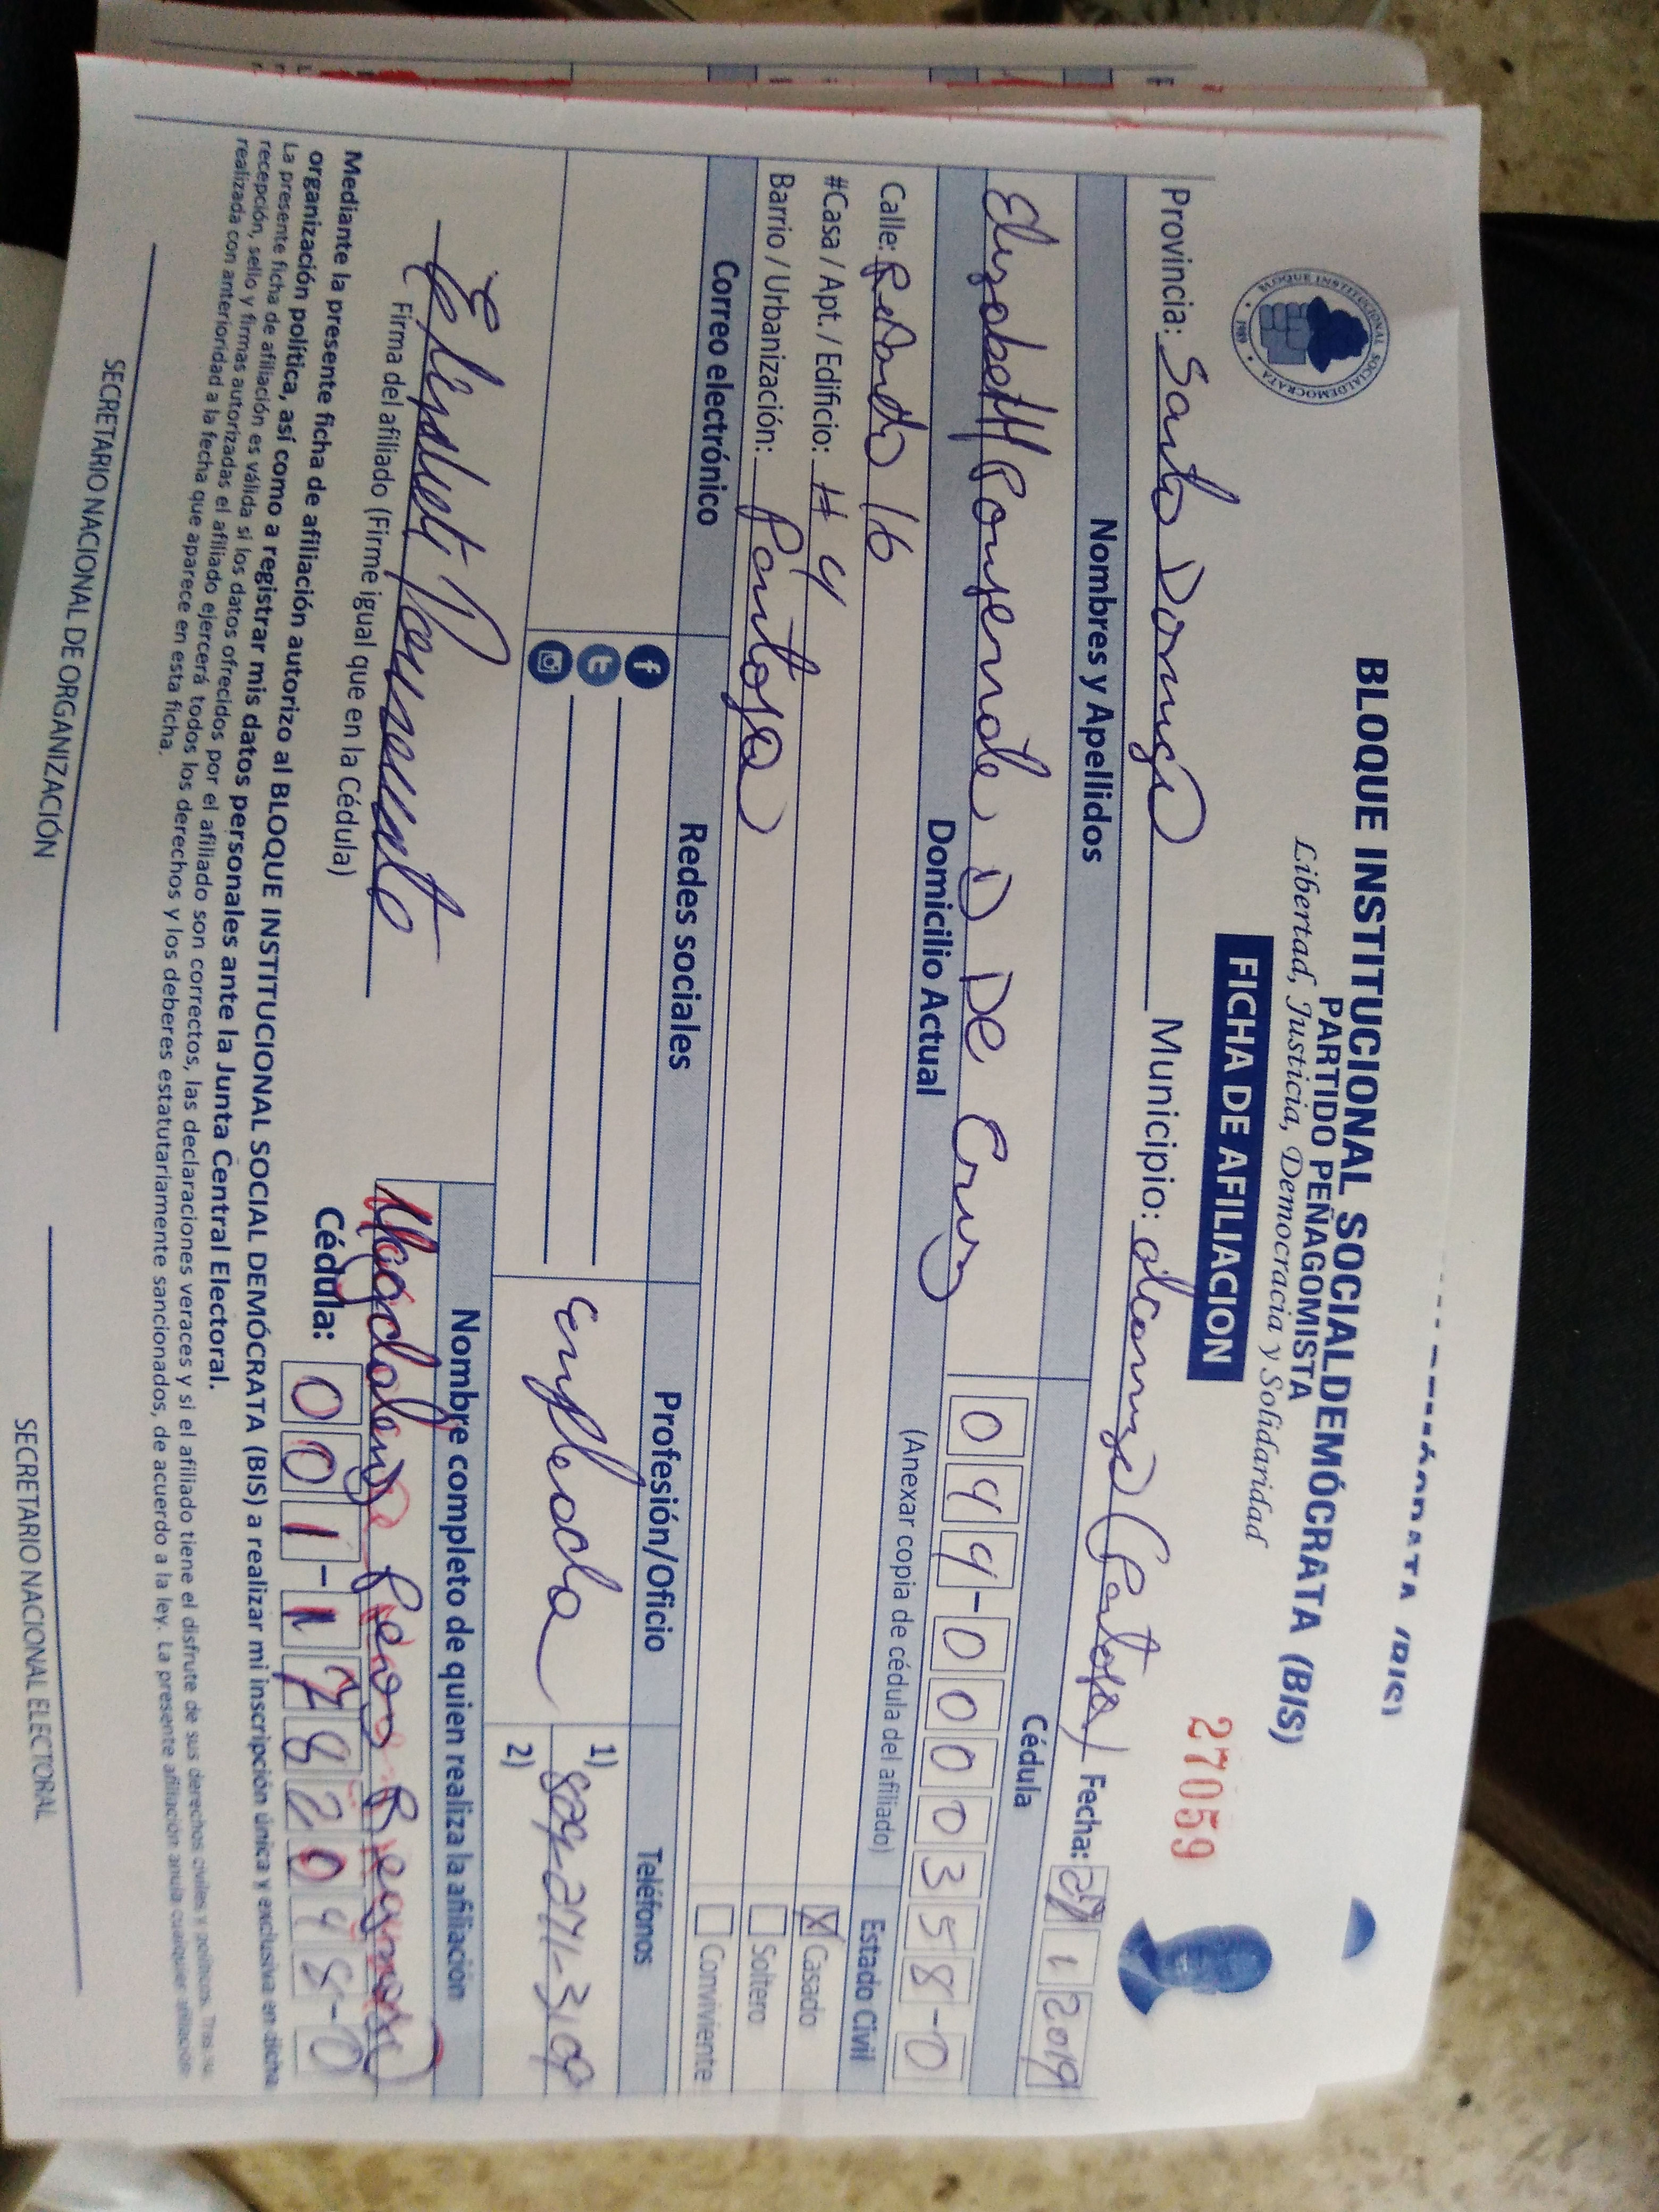 BLOQUE INSTITUCIONAL SOCIALDEMÓCRATA (BIS)
PARTIDO PEÑAGOMISTA
Libertad, Justicia, Democracia y Solidaridad
FICHA DE AFILIACION
27059
BLOQUE INSTITUCIONAL SOCIALDEMOCRATA
1989
Provincia: Santo Domingo Municipio: Fecha: 1 2019
Nombres y Apellidos Cédula
De Cruz 049-0000358-0
Domicilio Actual (Anexar copia de cédula del afiliado) Estado Civil
Calle: 16
X Casado
#Casa / Apt. / Edificio: # 4
Soltero
Barrio / Urbanización: Pantoja
Conviviente
Correo electrónico Redes sociales Profesión/Oficio Teléfonos
f
t
empleada
1) 809-271-3109
2)
Firma del afiliado (Firme igual que en la Cédula)
Nombre completo de quien realiza la afiliación
Magdalena
Cédula: 001-1782048-0
Mediante la presente ficha de afiliación autorizo al BLOQUE INSTITUCIONAL SOCIAL DEMÓCRATA (BIS) a realizar mi inscripción única y exclusiva en dicha
organización política, así como a registrar mis datos personales ante la Junta Central Electoral.
La presente ficha de afiliación es válida si los datos ofrecidos por el afiliado son correctos, las declaraciones veraces y si el afiliado tiene el disfrute de sus derechos civiles y políticos. Tras su
recepción, sello y firmas autorizadas el afiliado ejercerá todos los derechos y los deberes estatutariamente sancionados, de acuerdo a la ley. La presente afiliación anula cualquier afiliación
realizada con anterioridad a la fecha que aparece en esta ficha.
SECRETARIO NACIONAL DE ORGANIZACIÓN
SECRETARIO NACIONAL ELECTORAL